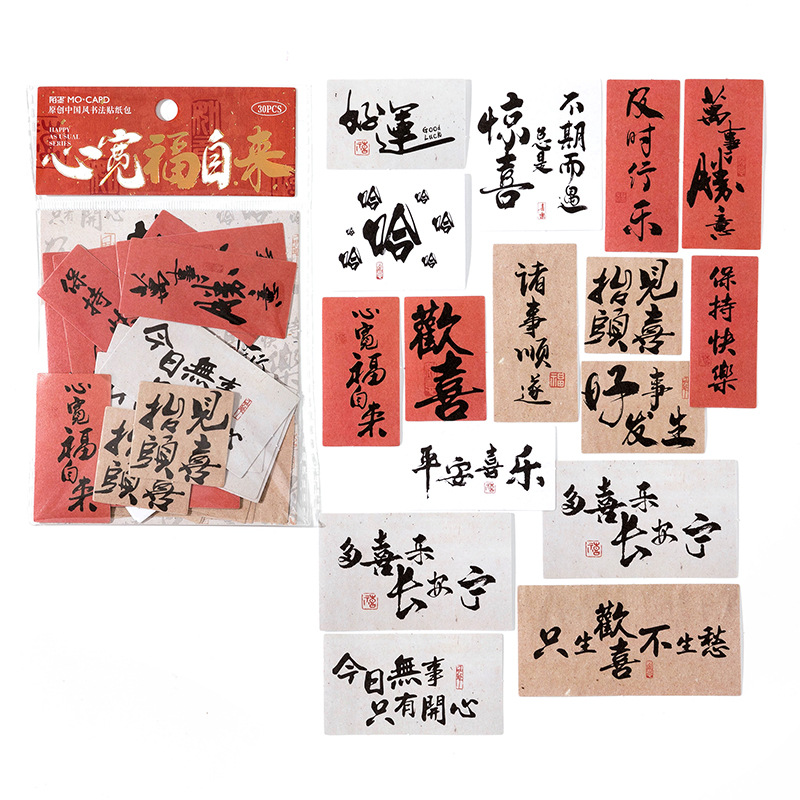 陌墨 MO·CARD
原创中国风书法贴纸包
30PCS
HAPPY
AS USUAL
SERIES
心宽福自来
保持快
萬事勝意
今日無事
心寬福自来
抬頭見喜
抬頭見喜
好運
GOOD
LUCK
不期而遇
总是
惊喜
及时行乐
萬事勝意
哈哈哈哈哈哈哈
心寬福自来
歡喜
诸事顺遂
福
抬頭見喜
保持快樂
好事
发生
平安喜乐
多喜乐
长安宁
多喜乐
长安宁
今日無事
只有開心
只生歡喜不生愁